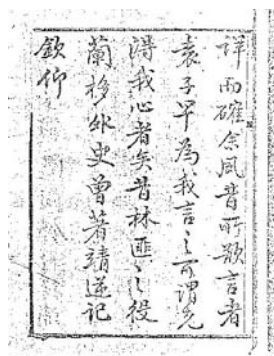 詳而確余夙昔所欲言者
袁子早為我言之可謂先
得我心者矣昔林匪之役
蘭簃外史曾著靖逆記
欽仰